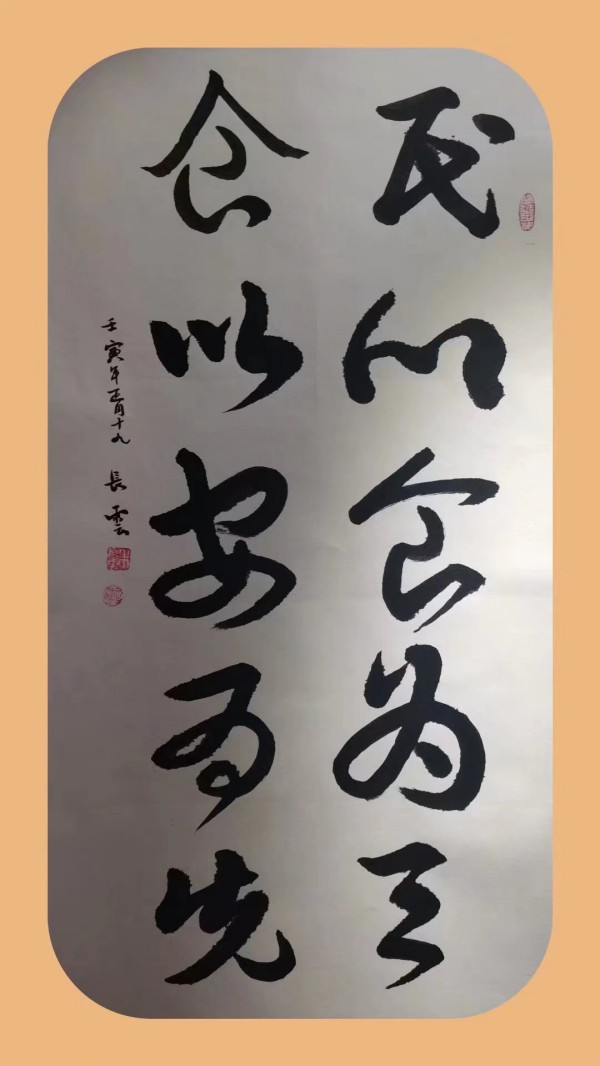 民以食为天
食以安为先
壬寅年正月十九 長雲